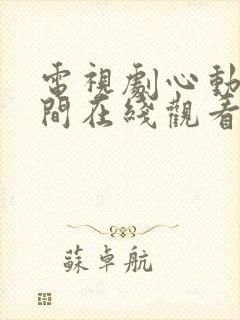 電視劇心動
間在綫觀看
蘇卓航